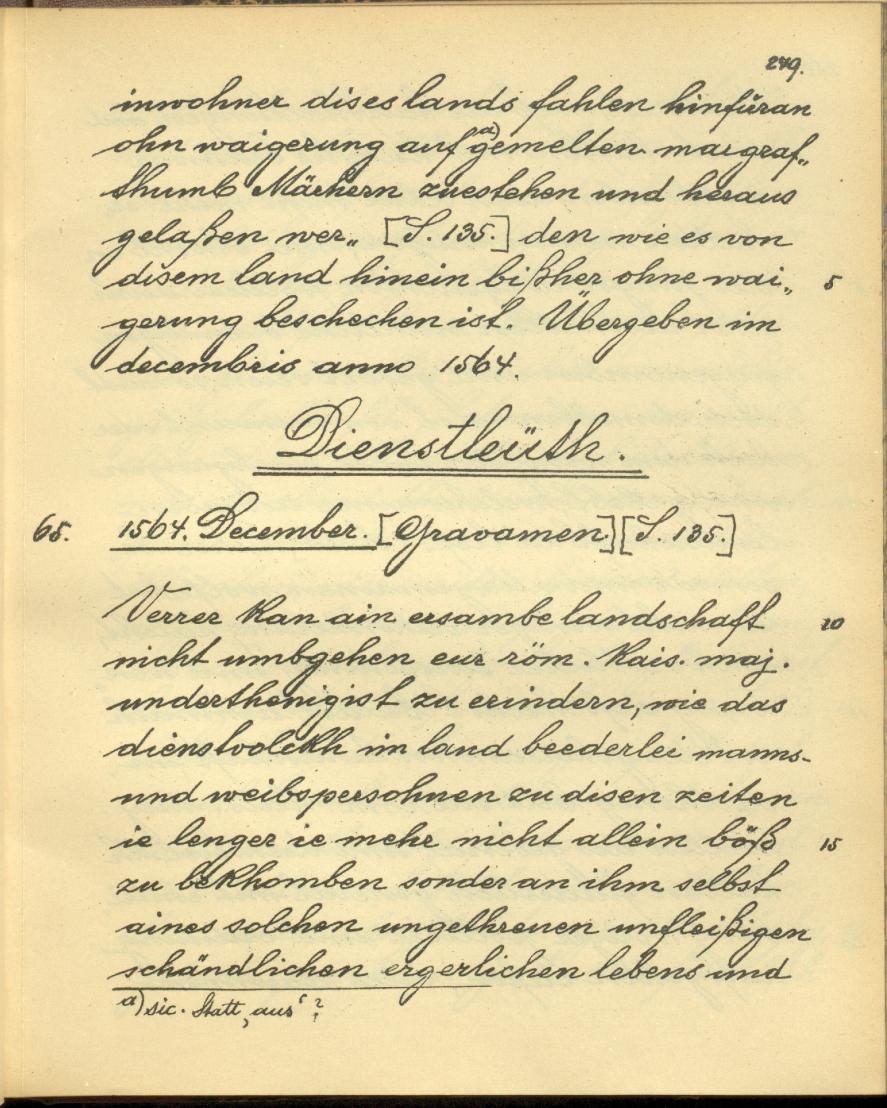 279.
inwohner dises lands fahlen hinfüran
ohn waigerung auf a) gemelten margraf„
thumb Märhern zuestehen und heraus
gelaßen wer„ [S. 135.] den wie es von
disem land hinein bißher ohne wai„ 5
gerung beschechen ist. Übergeben im
decembris anno 1564.
Dienstleüth.
65. 1564. December. [Gravamen] [S. 135.]
Verrer kan ain ersambe landschaft 10
nicht umbgehen eur röm. kais. maj.
underthenigist zu erindern, wie das
dienstvolckh im land beederlei manns-
und weibspersohnen zu disen zeiten
ie lenger ie mehr nicht allein böß 15
zu bekhomben sonder an ihm selbst
aines solchen ungethreuen unfleißigen
schändlichen ergerlichen lebens und
a) sic. Statt „aus“ ?